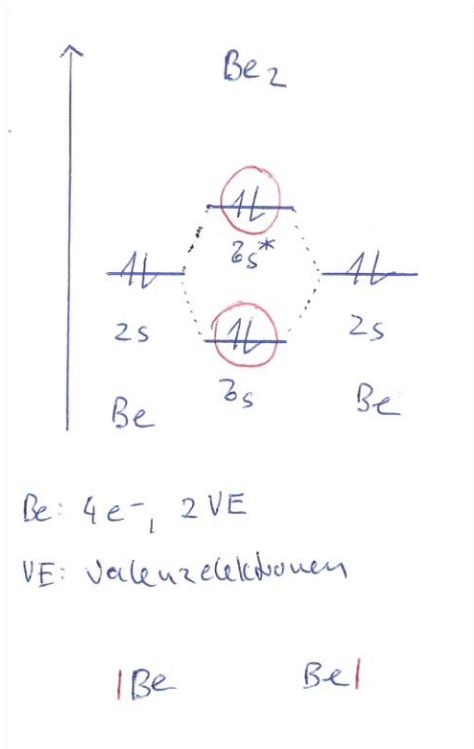 Be₂
σs*
2s 2s
σs
Be Be
Be: 4e⁻, 2 VE
VE: Valenzelektronen
|Be Be|